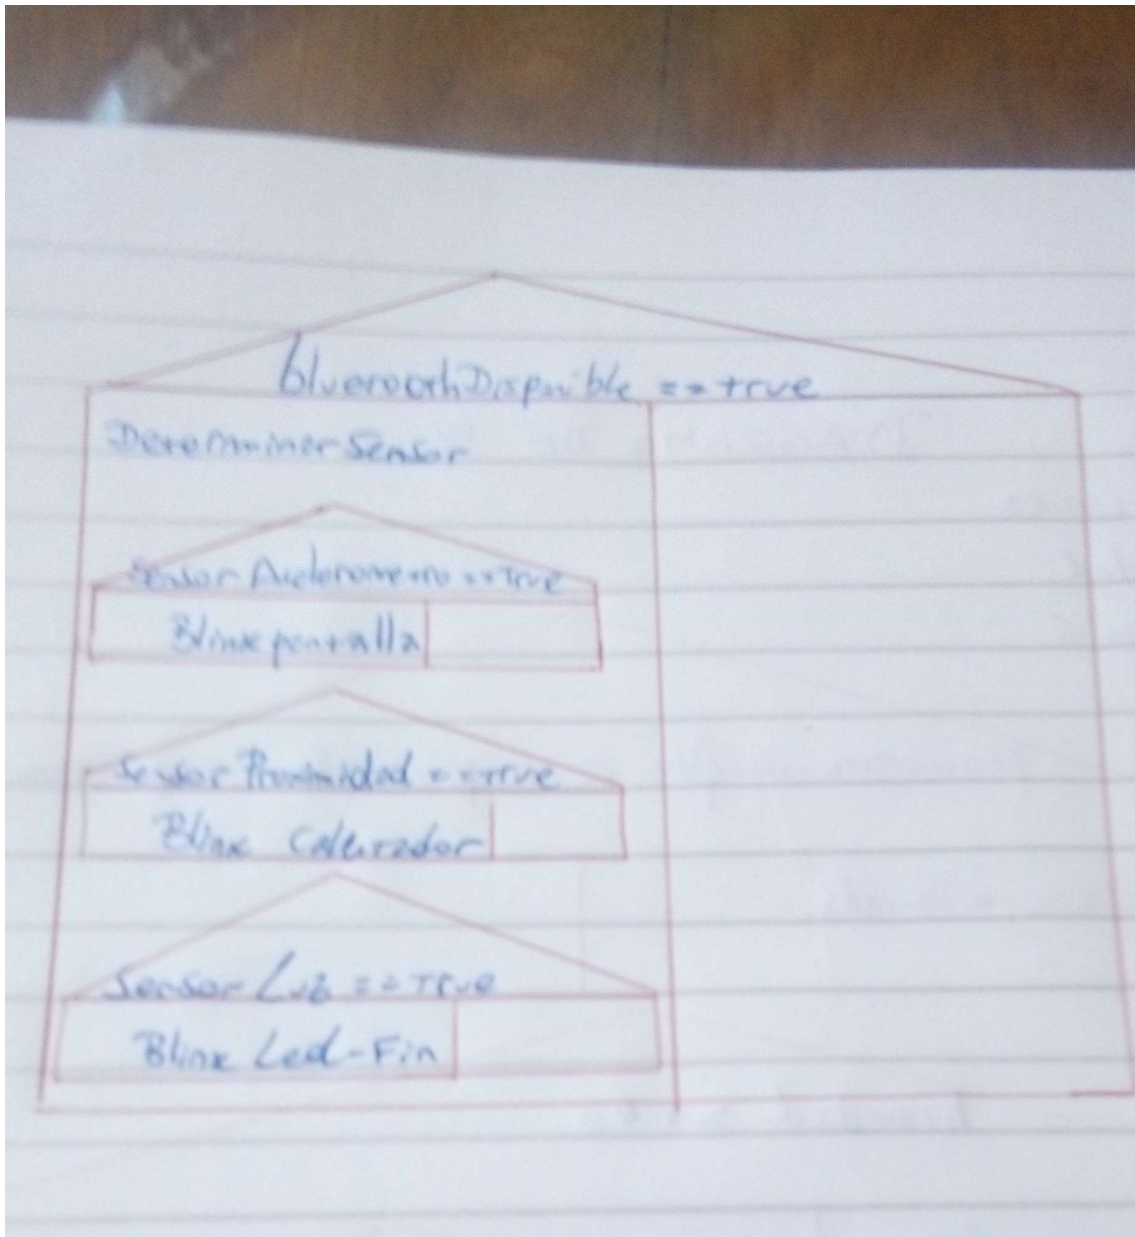 bluetoothDisponible == true
Determinar Sensor
Sensor Acelerometro == True
Blink pantalla
Sensor Proximidad == true
Blink
Sensor Luz == True
Blink Led-Fin